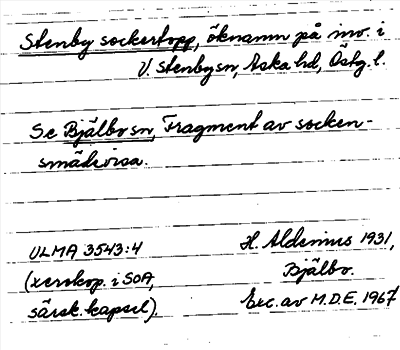 Stenby sockertopp, öknamn på inv. i
V. Stenby sn, Aska hd, Östg. l.
Se Bjälbo sn, Fragment av socken-
smädevisa.
ULMA 3543:4
(xerokop. i SOA,
särsk. kapsel).
H. Aldenius 1931,
Bjälbo.
Exc. av M.D.E. 1967